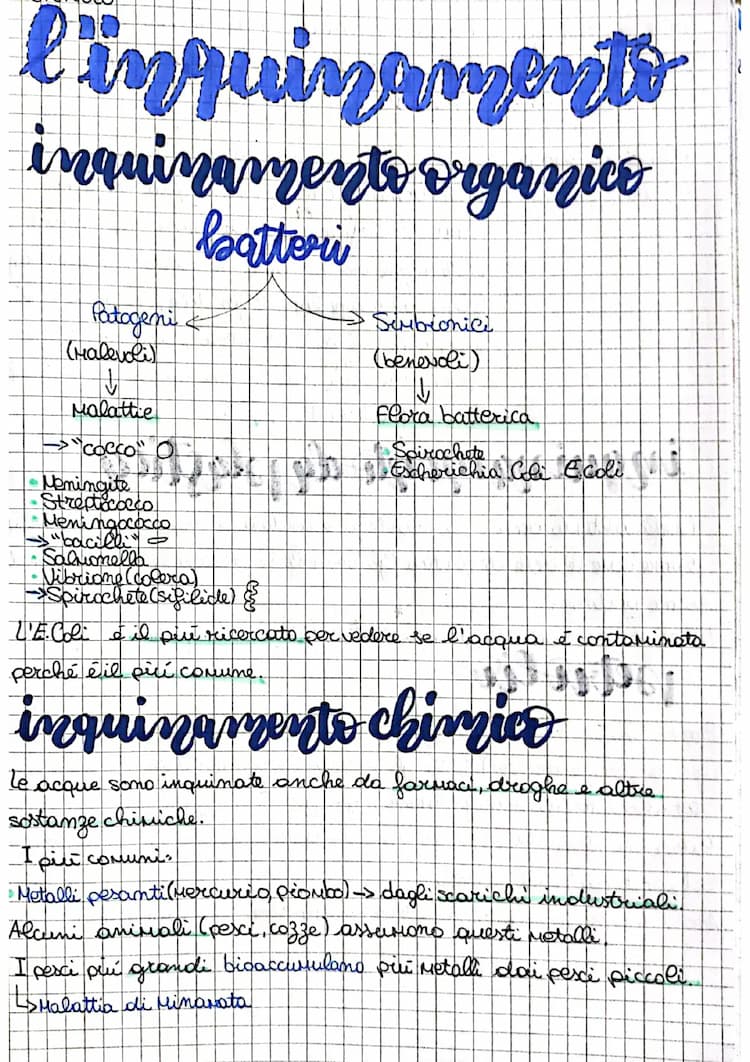 l'inquinamento
inquinamento organico
batteri
Patogeni
Simbionici
(malevoli)
(benevoli)
Malattie
Flora batterica
→"cocco" O
Spirochete
Escherichia Coli E Coli
• Meningite
• Streptococco
• Meningococco
→"bacilli"
• Salmonella
• Vibrione (colera)
→Spirochete (sifilide)
L'E.Coli é il piú ricercato per vedere se l'acqua é contaminata
perché é il piú comune.
inquinamento chimico
Le acque sono inquinate anche da farmaci, droghe e altre
sostanze chimiche.
I piú comuni:
• Metalli pesanti (Mercurio, piombo) → dagli scarichi industriali.
Alcuni animali (pesci, cozze) assumono questi metalli.
I pesci piú grandi bioaccumulano piú metalli dai pesci piccoli.
↳Malattia di Minamata